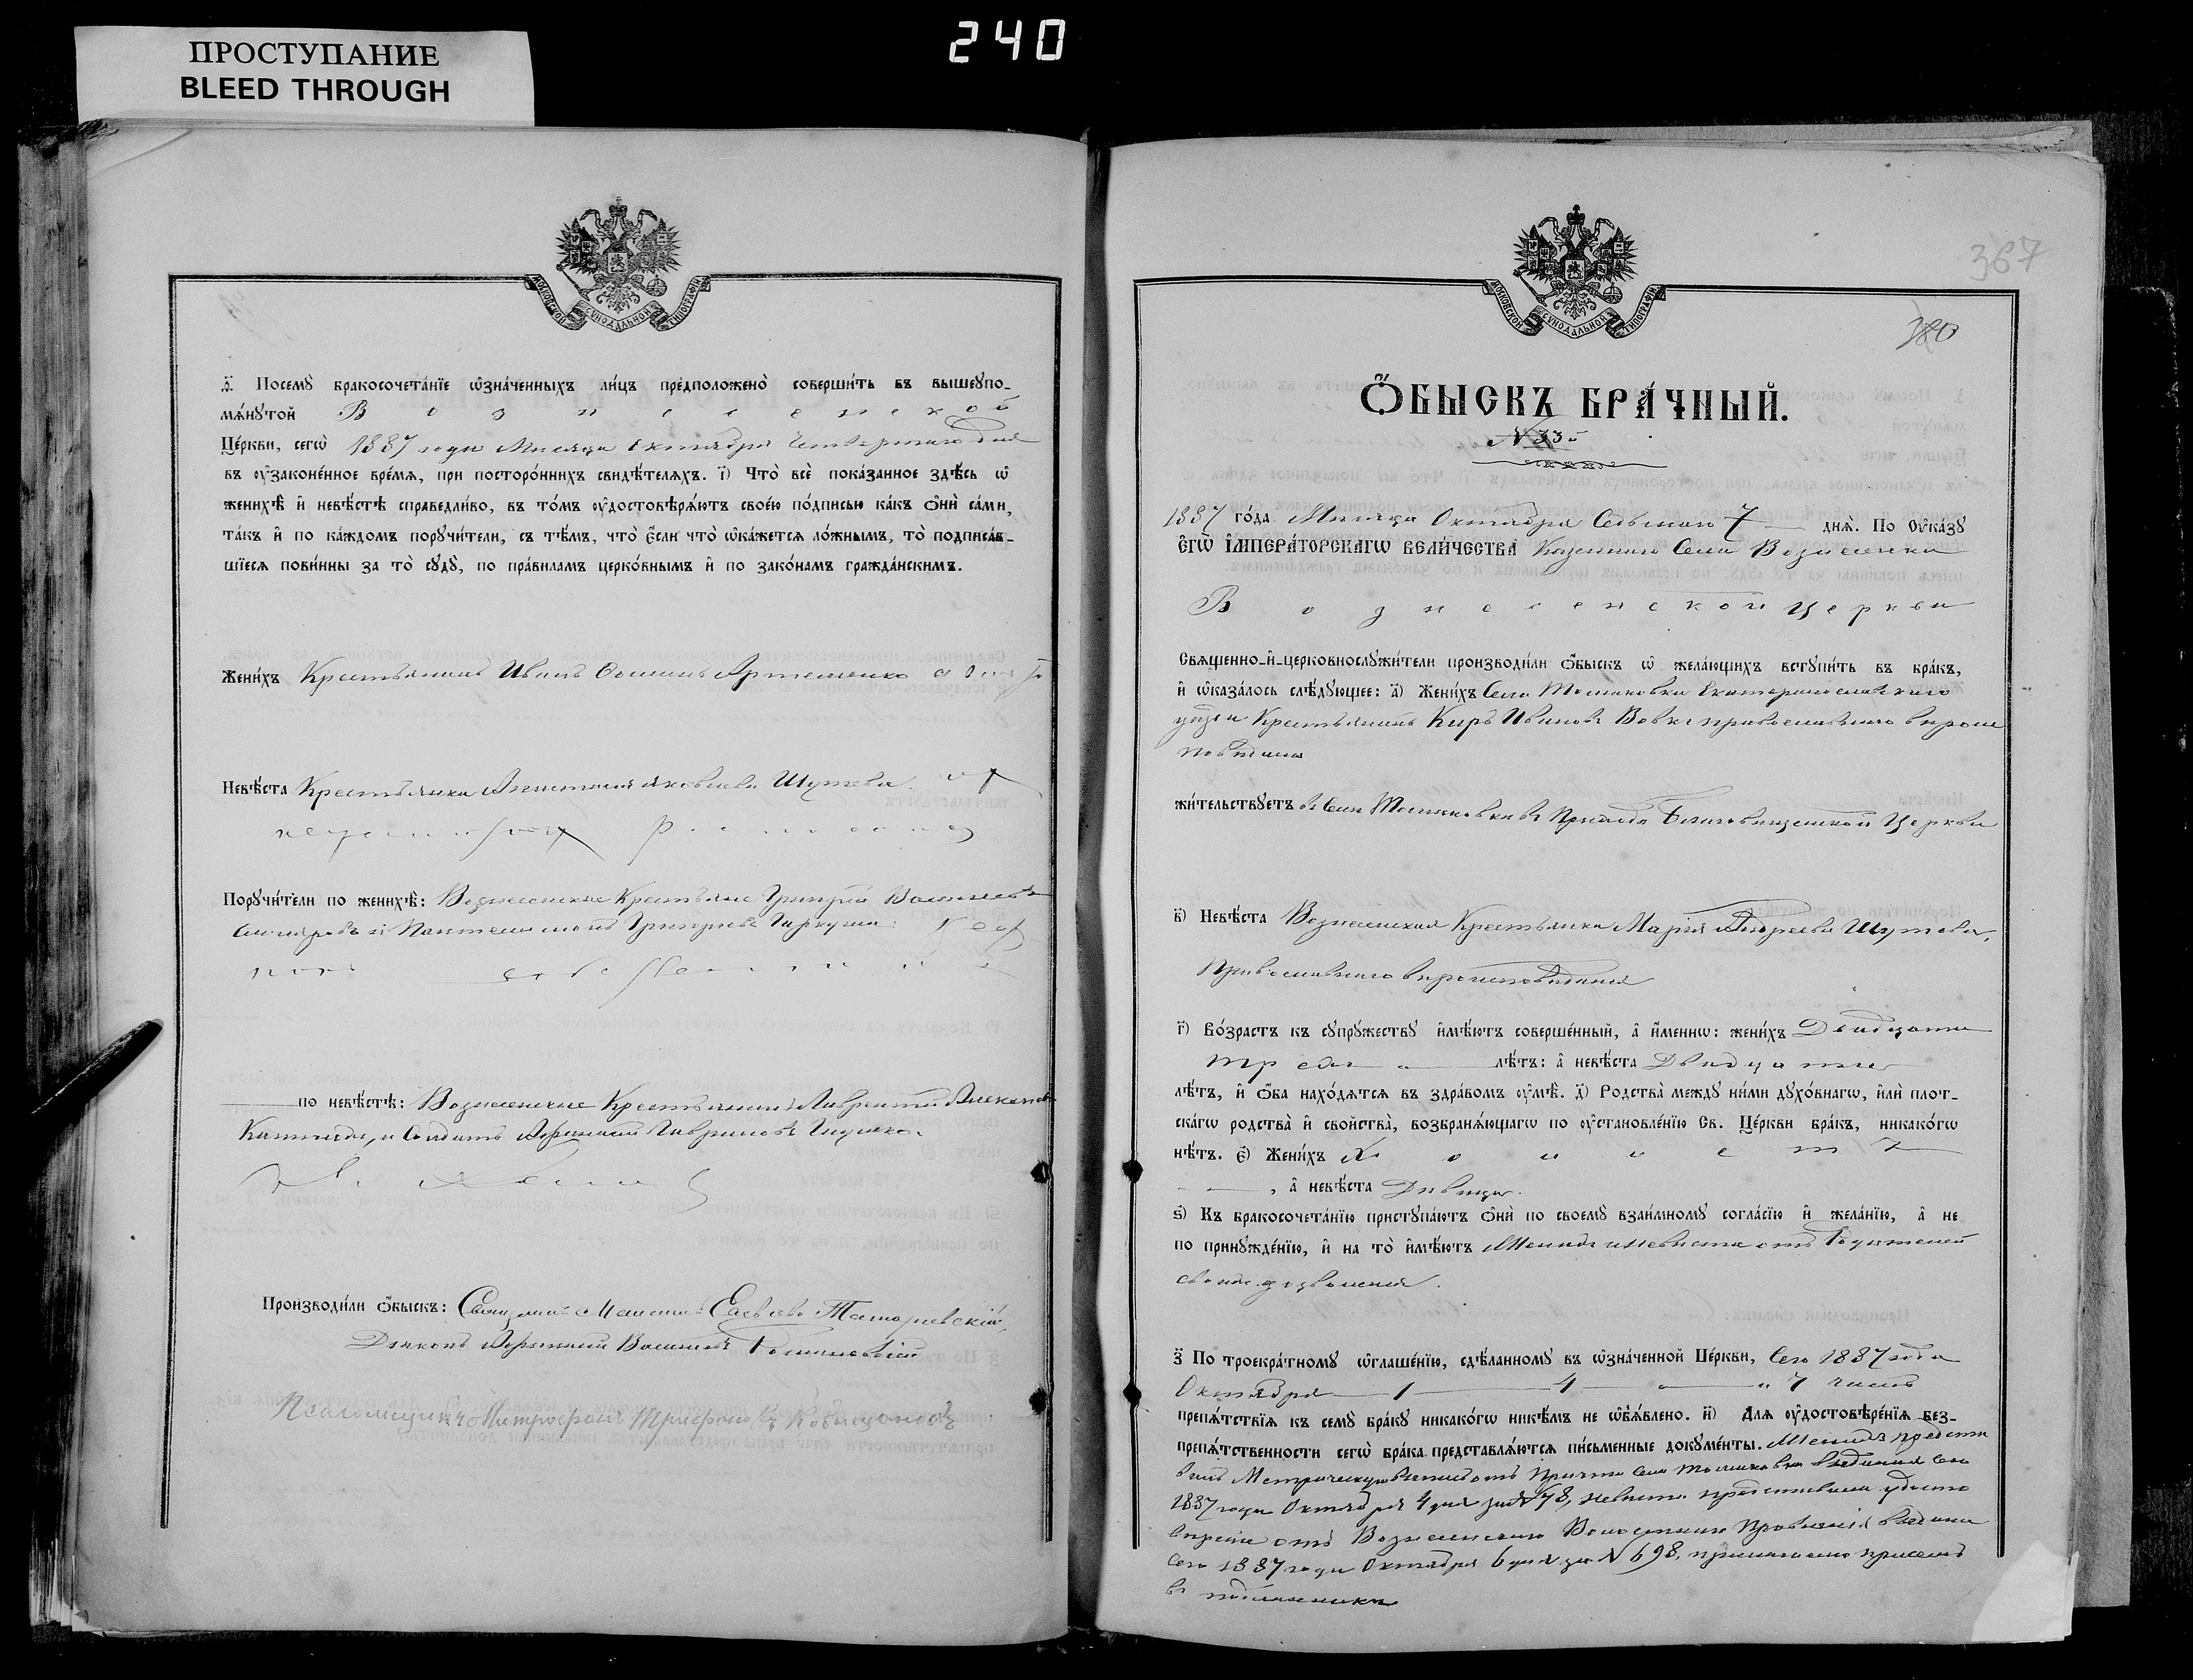 ПРОСТУПАНИЕ
BLEED THROUGH
240
МОСКОВСКОЙ СѴНОДАЛЬНОЙ ТИПОГРАФІИ
Посемꙋ̀ бракосочета́нїе ѡ҆зна́ченныхъ ли́цъ предположено̀ соверши́ть въ вышеꙋпо-
мѧ́нꙋтой Вознесенской
Це́ркви, сегѡ̀ 1887 года Мѣсяца Октября Четвертаго дня
въ ᲂу҆зако́ненное вре́мѧ, при посторо́ннихъ свидѣ́телѧхъ. і҃) Что̀ всѐ пока́занное здѣ́сь ѡ҆
женихѣ̀ и҆ невѣ́стѣ справедли́во, въ то́мъ ᲂу҆достовѣрѧ́ютъ свое́ю по́дписью ка́къ ѻ҆нѝ са́ми,
та́къ и҆ по ка́ждомъ порꙋчи́тели, съ тѣ́мъ, что̀ є҆́сли что̀ ѡ҆ка́жетсѧ ло́жнымъ, то̀ подписа́в-
шїесѧ пови́нны за то̀ сꙋдꙋ̀, по пра́виламъ церко́внымъ и҆ по зако́намъ гражда́нскимъ.
Жени́хъ Крестьянинъ Иванъ Ѳоминъ Артеменко
Невѣ́ста Крестьянка Анастасія Яковлева Шутова
Порꙋчи́тели по женихѣ̀: Вознесенскіе Крестьяне Григорій Васильевъ
и Пантелеимонъ Григорьевъ Гаркуша
по невѣ́стѣ: Вознесенские Крестьянинъ Лаврентій
и Солдатъ Гавриловъ
Производи́ли ѻ҆́быскъ: Священникъ
Діаконъ Василій
Псаломщикъ Митрофанъ Трифоновъ
367
380
МОСКОВСКОЙ СѴНОДАЛЬНОЙ ТИПОГРАФІИ
Ѻ҆́БЫСКЪ БРА́ЧНЫЙ.
№ 33й
1887 го́да Мѣсяца Октября Седьмаго 7 днѧ̀. По Оу҆ка́зꙋ
Є҆гѡ̀ И҆мпера́торскагѡ Вели́чества Казеннаго Села Вознесенки
Вознесенской Церкви
Свѧщенно-и҆-церковнослꙋжи́тели производи́ли ѻ҆́быскъ ѡ҆ жела́ющихъ встꙋпи́ть въ бра́къ,
и҆ ѡ҆каза́лось слѣ́дꙋющее: а҃) Жени́хъ Села Томаковки Екатеринославскаго
уѣзда Крестьянинъ Киръ Ивановъ Вовкъ православнаго вѣроис
повѣданія
жи́тельствꙋетъ въ Селѣ Томаковкѣ въ Приходѣ Благовѣщенской Церкви
в҃) Невѣ́ста Вознесенская Крестьянка Марія Андреева Шутова,
Православнаго вѣроисповѣданія
г҃) Во́зрастъ къ сꙋпрꙋ́жествꙋ и҆мѣ́ютъ соверше́нный, а҆ и҆́меннѡ: жени́хъ Двадцати
трехъ лѣ́тъ: а҆ невѣ́ста Двадцати
лѣ́тъ, и҆ ѻ҆́ба нахо́дѧтсѧ въ здра́вомъ ᲂу҆мѣ̀. д҃) Родства̀ междꙋ ни́ми дꙋхо́внагѡ, и҆лѝ плот-
ска́гѡ родства̀ и҆ сво́йства, возбранѧ́ющагѡ по ᲂу҆становле́нїю Св. Це́ркви бра́къ, никако́гѡ
нѣ́тъ. є҃) Жени́хъ Холостъ
, а҆ невѣ́ста Дѣвица.
ѕ҃) Къ бракосочета́нїю пристꙋпа́ютъ ѻ҆нѝ по своемꙋ̀ взаи́мномꙋ согла́сїю и҆ жела́нїю, а҆ не
по принꙋжде́нїю, и҆ на то̀ и҆мѣ́ютъ Женихъ и Невѣста отъ Родителей
своихъ дозволенія.
з҃ По троекра́тномꙋ ѡ҆глаше́нїю, сдѣ́ланномꙋ въ ѡ҆зна́ченной Це́ркви, Сего 1887 года
Октября 1 4 и 7 числъ
препѧ́тствїѧ къ семꙋ̀ бра́кꙋ никако́гѡ никѣ́мъ не ѡ҆б̾ѧ́влено. и҃) Длѧ ᲂу҆достовѣре́нїѧ без-
препѧ́тственности сегѡ̀ бра́ка представлѧ́ютсѧ пи́сьменные докꙋме́нты. Женихъ предста
вилъ Метрическую выпись отъ Причта Села Томаковки выданная сего
1887 года Октября 4 дня за № 78, Невѣста представила удосто
вѣреніе отъ Вознесенскаго Волостнаго Правленія выдана
Сего 1887 года Октября 6 дня за № 698, прилагаемо при семъ
въ подлинникѣ